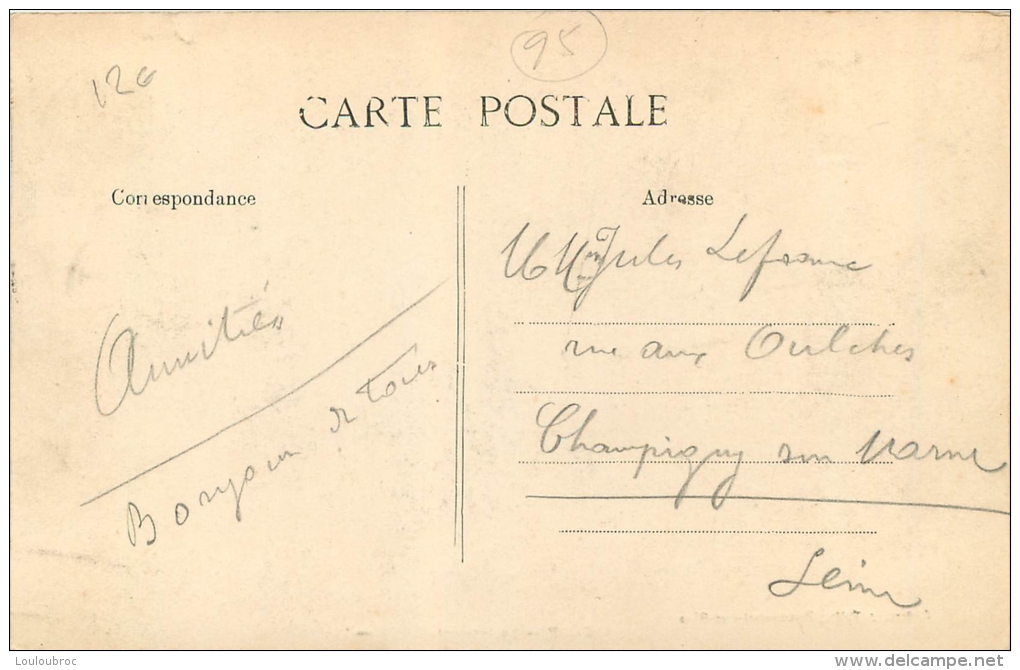 95
12€
CARTE POSTALE
Correspondance
Adresse
Amitiés
Bonjour de tous
M Mme Jules Lefranc
rue aux Oulches
Champigny sur Marne
Seine
Louloubroc
www.delcampe.net